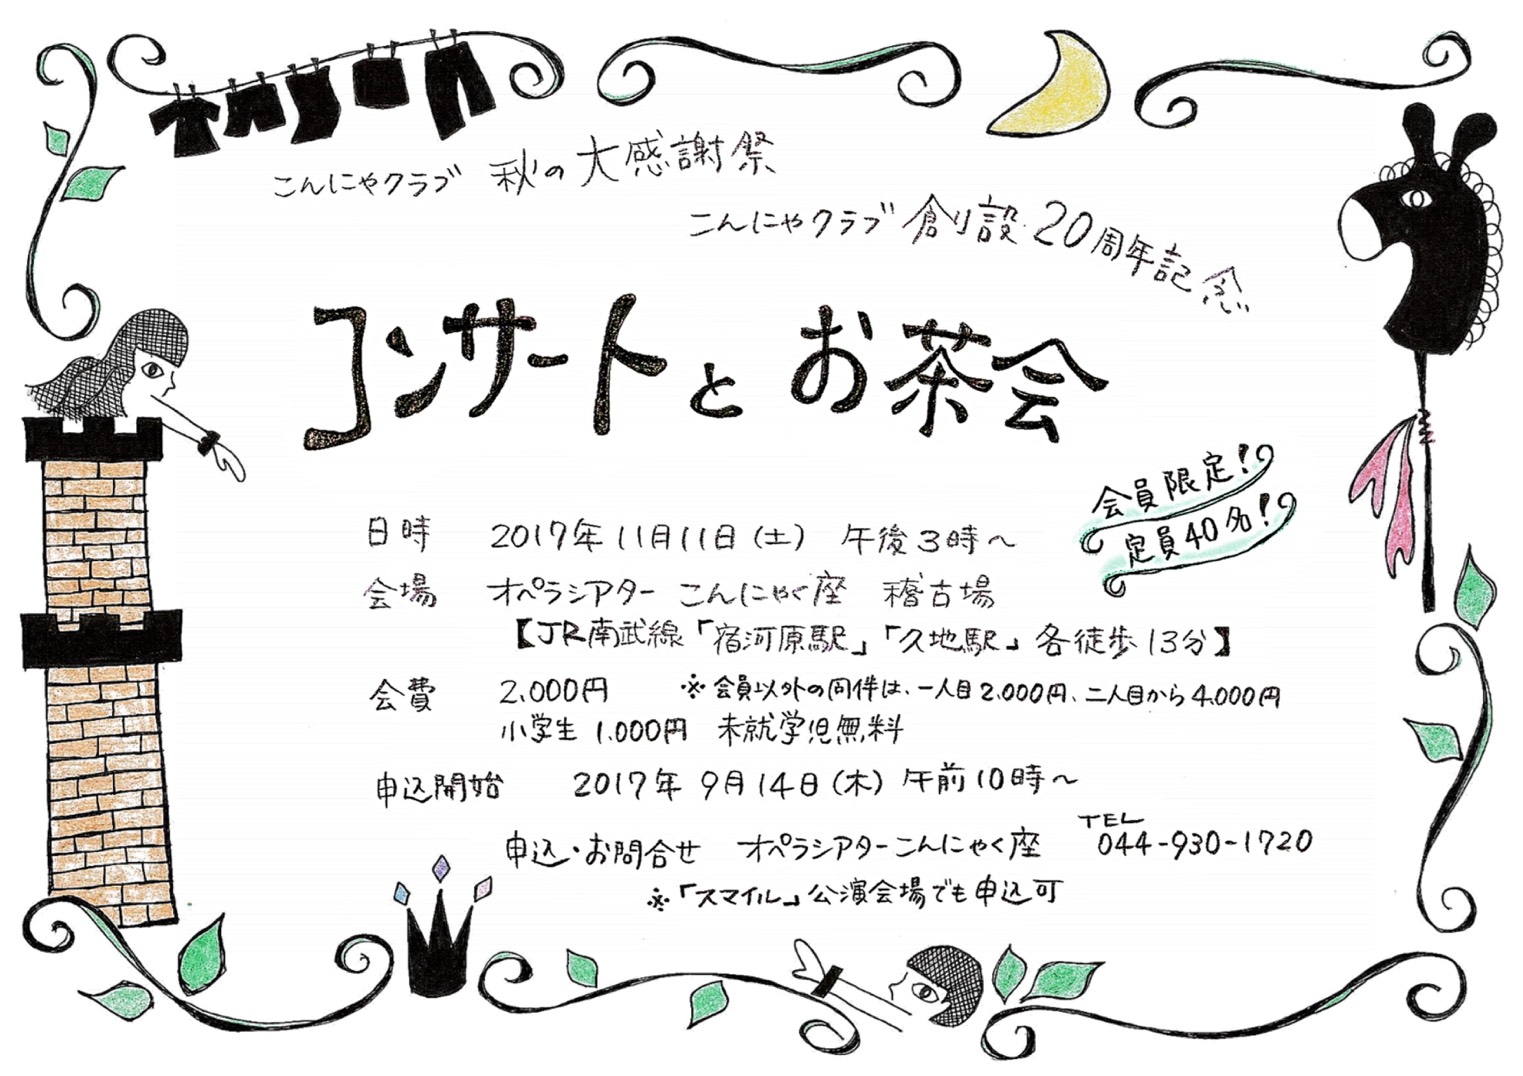 こんにゃクラブ 秋の大感謝祭
こんにゃクラブ 創設20周年記念
コンサートとお茶会
会員限定!
定員40名!
日時 2017年11月11日(土) 午後3時〜
会場 オペラシアター こんにゃく座 稽古場
【JR南武線「宿河原駅」「久地駅」各徒歩13分】
会費 2,000円 ※会員以外の同伴は、一人目2,000円、二人目から4,000円
小学生1,000円 未就学児無料
申込開始 2017年 9月14日(木) 午前10時〜
申込・お問合せ オペラシアターこんにゃく座 TEL 044-930-1720
※「スマイル」公演会場でも申込可